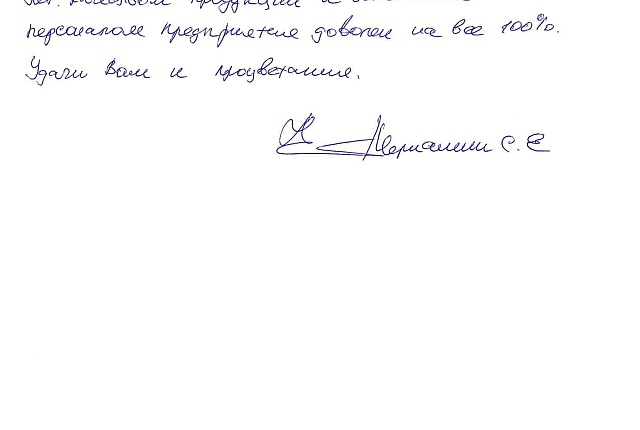 продукции и
персоналом предприятия доволен на все 100%.
Удачи Вам и процветания.
С. Е